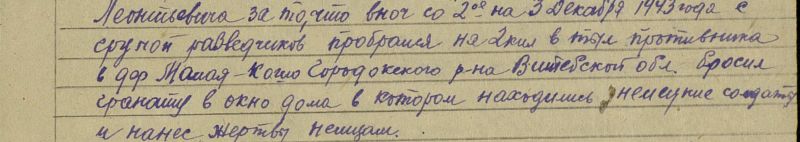 Леонтьевича за то, что в ноч со 2ое на 3 Декабря 1943 года с
групой разведчиков пробрался на 2 кил в тыл противника
в дер Малая Городокского р-на Витебской обл. бросил
гранату в окно дома в котором находились немецкие солдаты
и нанес жертвы немцам.